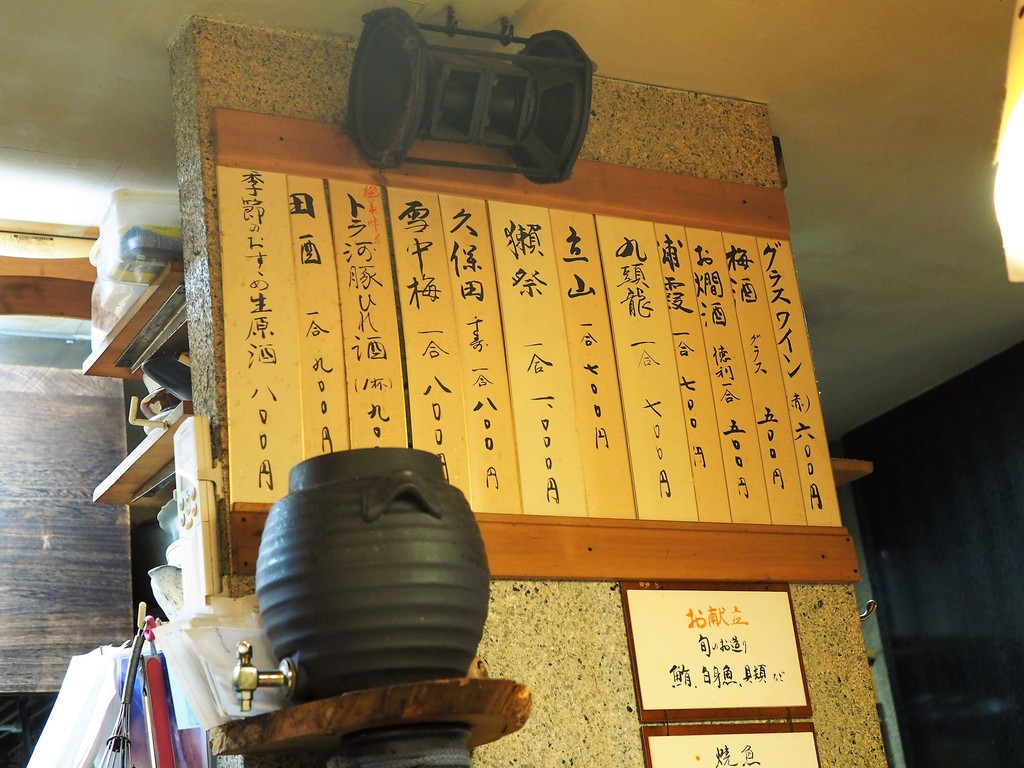 グラスワイン(赤) 六〇〇円
梅酒 グラス 五〇〇円
お燗酒 徳利一合 五〇〇円
浦霞 一合 七〇〇円
九頭龍 一合 七〇〇円
立山 一合 七〇〇円
獺祭 一合 一、〇〇〇円
久保田 千寿 一合 八〇〇円
雪中梅 一合 八〇〇円
トラ河豚ひれ酒(1杯) 九〇
田酒 一合 九〇〇円
季節のおすすめ生原酒 八〇〇円
お献立
旬のお造り
鮪、白身魚、貝類など
焼魚